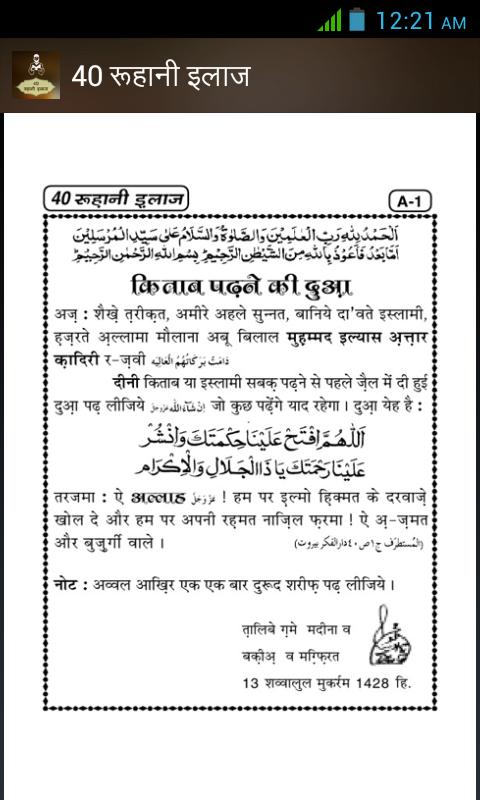 12:21 AM
40 रूहानी इलाज
40 रूहानी इलाज
40 रूहानी इलाज
A-1
اَلْحَمْدُ لِلّٰهِ رَبِّ الْعٰلَمِيْنَ وَالصَّلٰوةُ وَالسَّلَامُ عَلٰى سَيِّدِ الْمُرْسَلِيْنَ
اَمَّا بَعْدُ فَاَعُوْذُ بِاللّٰهِ مِنَ الشَّيْطٰنِ الرَّجِيْمِ ؕ بِسْمِ اللّٰهِ الرَّحْمٰنِ الرَّحِيْمِ ؕ
किताब पढ़ने की दुआ़
अज़ : शैख़े त़रीक़त, अमीरे अहले सुन्नत, बानिये दा'वते इस्लामी,
ह़ज़रते अ़ल्लामा मौलाना अबू बिलाल मुह़म्मद इल्यास अ़त़्त़ार
क़ादिरी र-ज़वी دَامَتْ بَرَكَاتُهُمُ الْعَالِيَه
दीनी किताब या इस्लामी सबक़ पढ़ने से पहले ज़ैल में दी हुई
दुआ़ पढ़ लीजिये اِنْ شَآءَ اللّٰه عَزَّوَجَلَّ जो कुछ पढ़ेंगे याद रहेगा। दुआ़ येह है :
اَللّٰهُمَّ افْتَحْ عَلَيْنَا حِكْمَتَكَ وَانْشُرْ
عَلَيْنَا رَحْمَتَكَ يَا ذَا الْجَلَالِ وَالْاِكْرَام
तरजमा : ऐ अल्लाह عَزَّوَجَلَّ ! हम पर इ़ल्मो ह़िक्मत के दरवाज़े
खोल दे और हम पर अपनी रह़मत नाज़िल फ़रमा ! ऐ अ़-ज़मत
और बुज़ुर्गी वाले। (المُستطرَف ج ١ ص ٤٠ دارالفكر بيروت)
नोट : अव्वल आख़िर एक एक बार दुरूद शरीफ़ पढ़ लीजिये।
त़ालिबे ग़मे मदीना व
बक़ीअ़ व मग़्फ़िरत
13 शव्वालुल मुकर्रम 1428 हि.